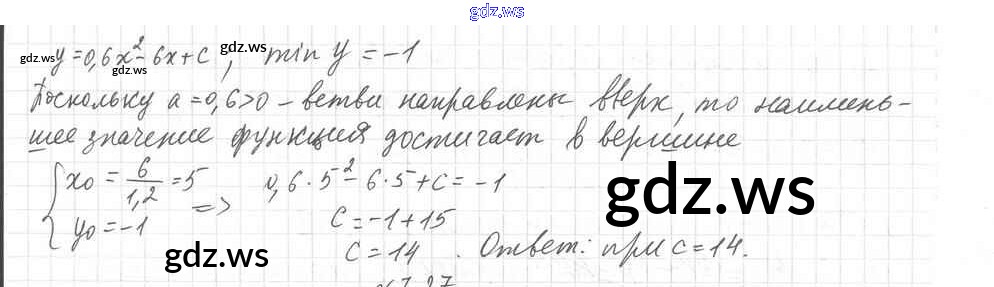 gdz.ws
y = 0,6x² - 6x + c, min y = -1
gdz.ws gdz.ws gdz.ws
Поскольку a = 0,6 > 0 - ветви направлены вверх, то наимень-
шее значение функция достигает в вершине
{ x₀ = 6/1,2 = 5 => 0,6 · 5² - 6 · 5 + c = -1
y₀ = -1 c = -1 + 15
gdz.ws
c = 14. Ответ: при c = 14.
gdz.ws